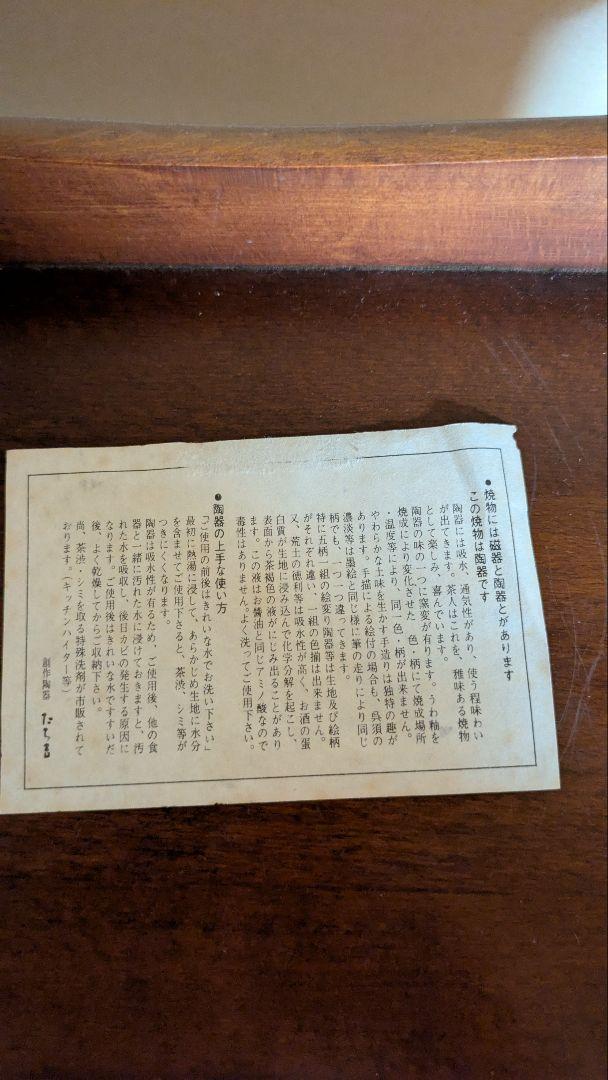 ●焼物には磁器と陶器とがあります
この焼物は陶器です
陶器には吸水、通気性があり、使う程味わい
が出てきます。茶人はこれを、雅味ある焼物
として楽しみ、喜んでいます。
陶器の味の一つに窯変が有ります。うわ釉を
焼成により変化させた 色・柄にて焼成場所
・温度等により、同一色・柄が出来ません。
やわらかな土味を生かす手造りは独特の趣が
あります。手描による絵付の場合も、呉須の
濃淡等は墨絵と同じ様に筆の走りにより同じ
柄でも、一つ一つ違ってきます。
特に五柄一組の絵変り陶器等は生地及び絵柄
がそれぞれ違い、一組の色揃は出来ません。
又、荒土の徳利等は吸水性が高く、お酒の蛋
白質が生地に浸み込んで化学分解を起こし、
表面から茶褐色の液がにじみ出ることがあり
ます。この液はお醤油と同じアミノ酸なので
毒性はありません。よく洗ってご使用下さい。
●陶器の上手な使い方
「ご使用の前後はきれいな水でお洗い下さい」
最初に熱湯に浸して、あらかじめ生地に水分
を含ませてご使用下さると、茶渋、シミ等が
つきにくくなります。
陶器は吸水性が有るため、ご使用後、他の食
器と一緒に汚れた水に浸けておきますと、汚
れた水を吸収し、後日カビの発生する原因に
なります。ご使用後はきれいな水ですすいだ
後、よく乾燥してからご収納下さい。
尚、茶渋・シミを取る特殊洗剤が市販されて
おります。(キッチンハイター等)
創作陶器 たち吉